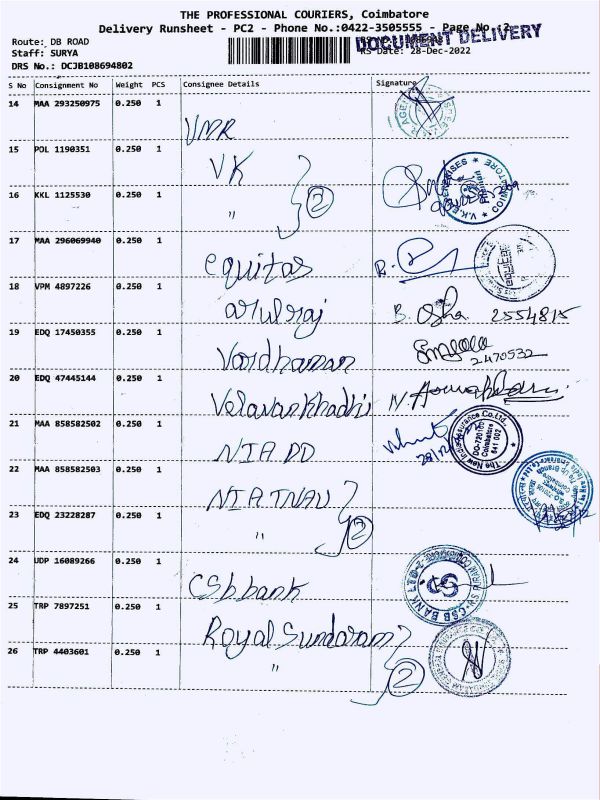 THE PROFESSIONAL COURIERS, Coimbatore
Delivery Runsheet - PC2 - Phone No.:0422-3505555 - Page No.:2
DOCUMENT DELIVERY
Route: DB ROAD
Staff: SURYA
RS Date: 28-Dec-2022
DRS No.: DCJB108694802
S No Consignment No Weight PCS Consignee Details Signature
14 MAA 293250975 0.250 1 VMR
15 POL 1190351 0.250 1 VK
16 KKL 1125530 0.250 1 " 2
17 MAA 296069940 0.250 1 equitas R.
18 VPM 4897226 0.250 1 arulraj B. Usha 2554815
19 EDQ 17450355 0.250 1 Vardhaman 2470532
20 EDQ 47445144 0.250 1 Velavan Khadhi N.
21 MAA 858582502 0.250 1 NIA DD
22 MAA 858582503 0.250 1 NIA TNAU
23 EDQ 23228287 0.250 1 " 2
24 UDP 16089266 0.250 1 CSb bank
25 TRP 7897251 0.250 1 Royal Sundaram
26 TRP 4403601 0.250 1 " 2